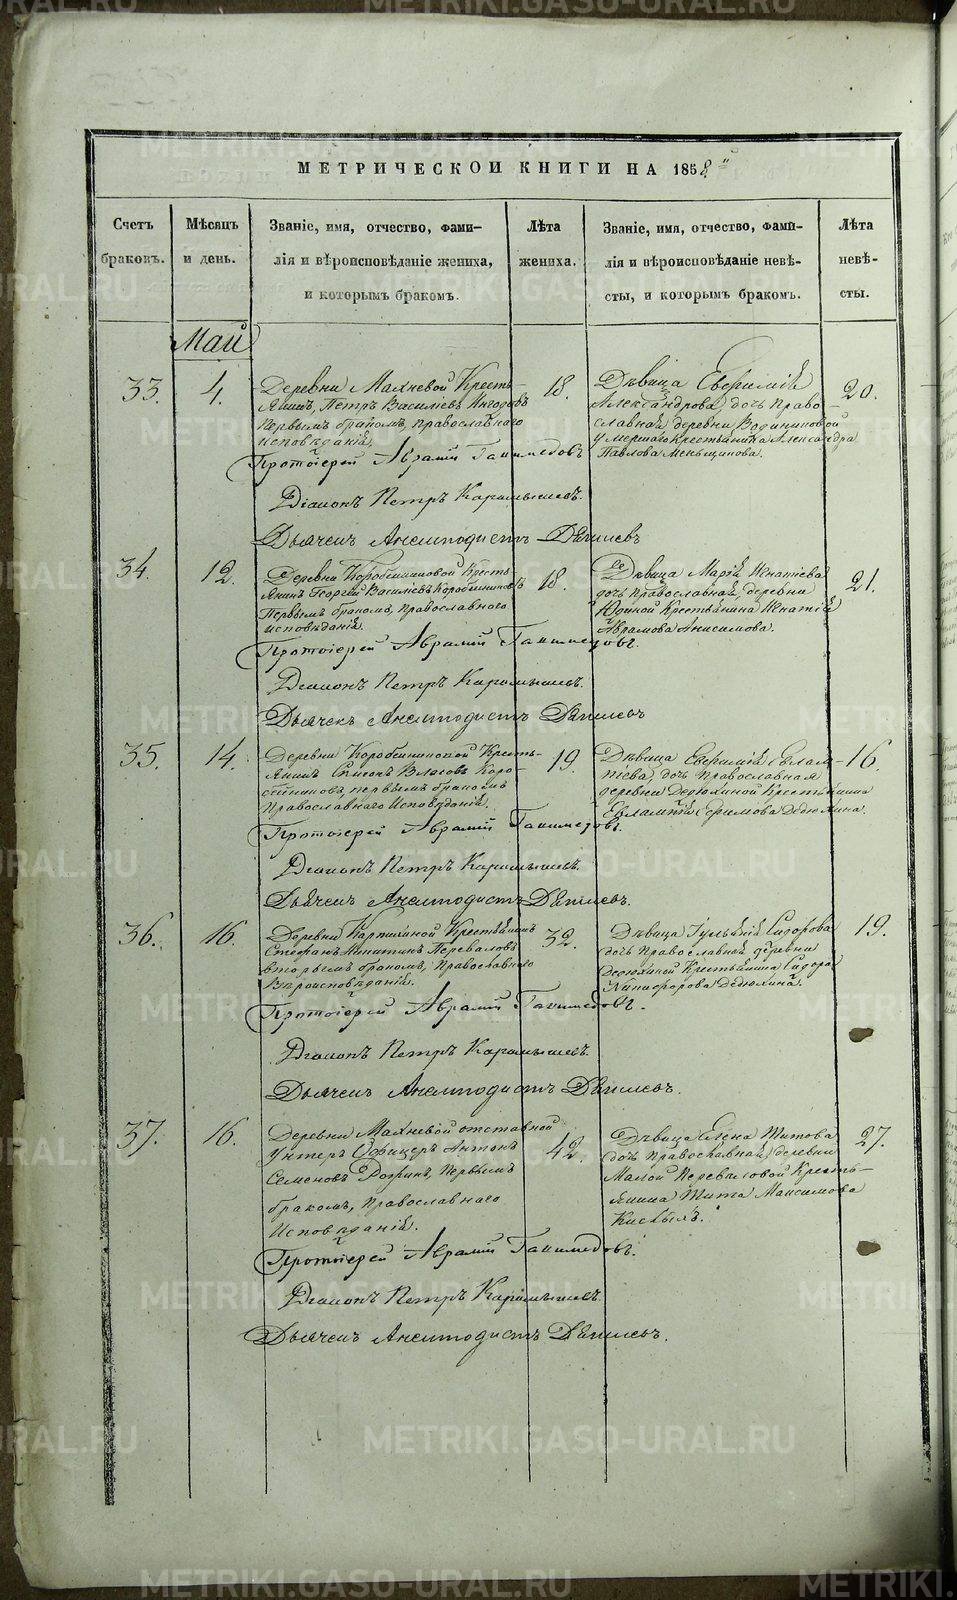 МЕТРИЧЕСКОИ КНИГИ НА 1858.
Счетъ браковъ.
Мѣсяцъ и день.
Званіе, имя, отчество, фами-
лія и вѣроисповѣданіе жениха,
и которымъ бракомъ.
Лѣта жениха.
Званіе, имя, отчество, фами-
лія и вѣроисповѣданіе невѣ-
сты, и которымъ бракомъ.
Лѣта невѣ-
сты.
Май
33.
4.
Деревни Махневой Кресть-
янинъ, Петръ Василіевъ
Первымъ бракомъ, православнаго
исповѣданія.
18.
Дѣвица Евфимія
Александрова, дочь Право-
славная деревни
умершаго Крестьянина Александра
Павлова Меньщикова.
20.
Протоіерей Аврамій Ганимедовъ
Діаконъ Петръ Карамышевъ.
Дьячекъ Анемподистъ
34.
12.
Деревни Коробейниковой Кресть-
янинъ Георгій Василіевъ Коробейниковъ
Первымъ бракомъ, православнаго
исповѣданія.
18.
Дѣвица Марія Игнатіева
дочь православная, деревни
Юдиной Крестьянина Игнатія
Аврамова Анисимова.
21.
Протоіерей Аврамій Ганимедовъ.
Діаконъ Петръ Карамышевъ.
Дьячекъ Анемподистъ
35.
14.
Деревни Коробейниковой Кресть-
янинъ Симеонъ Власовъ Коро-
бейниковъ, первымъ бракомъ
Православнаго Исповѣданія.
19.
Дѣвица Евфимія Евлам-
піева, дочь православная
деревни Дедюхиной Крестьянина
Евлампія Ефимова Дедюхина.
16.
Протоіерей Аврамій Ганимедовъ.
Діаконъ Петръ Карамышевъ.
Дьячекъ Анемподистъ
36.
16.
Деревни Крестьянинъ
Стефанъ Никитинъ Переваловъ
вторымъ бракомъ, православнаго
Вѣроисповѣданія.
32.
Дѣвица Гульянія Сидорова
дочь Православная деревни
Дедюхиной Крестьянина Сидора
Никифорова Дедюхина.
19.
Протоіерей Аврамій Ганимедовъ.
Діаконъ Петръ Карамышевъ.
Дьячекъ Анемподистъ
37.
16.
Деревни Махневой отставной
Унтеръ Офицеръ Антонъ
Семеновъ Первымъ
бракомъ, Православнаго
Исповѣданія.
42.
Дѣвица Елена Титова
дочь Православная, деревни
Малой Переваловой Кресть-
янина Тита Максимова
27.
Протоіерей Аврамій Ганимедовъ.
Діаконъ Петръ Карамышевъ.
Дьячекъ Анемподистъ
METRIKI.GASO-URAL.RU